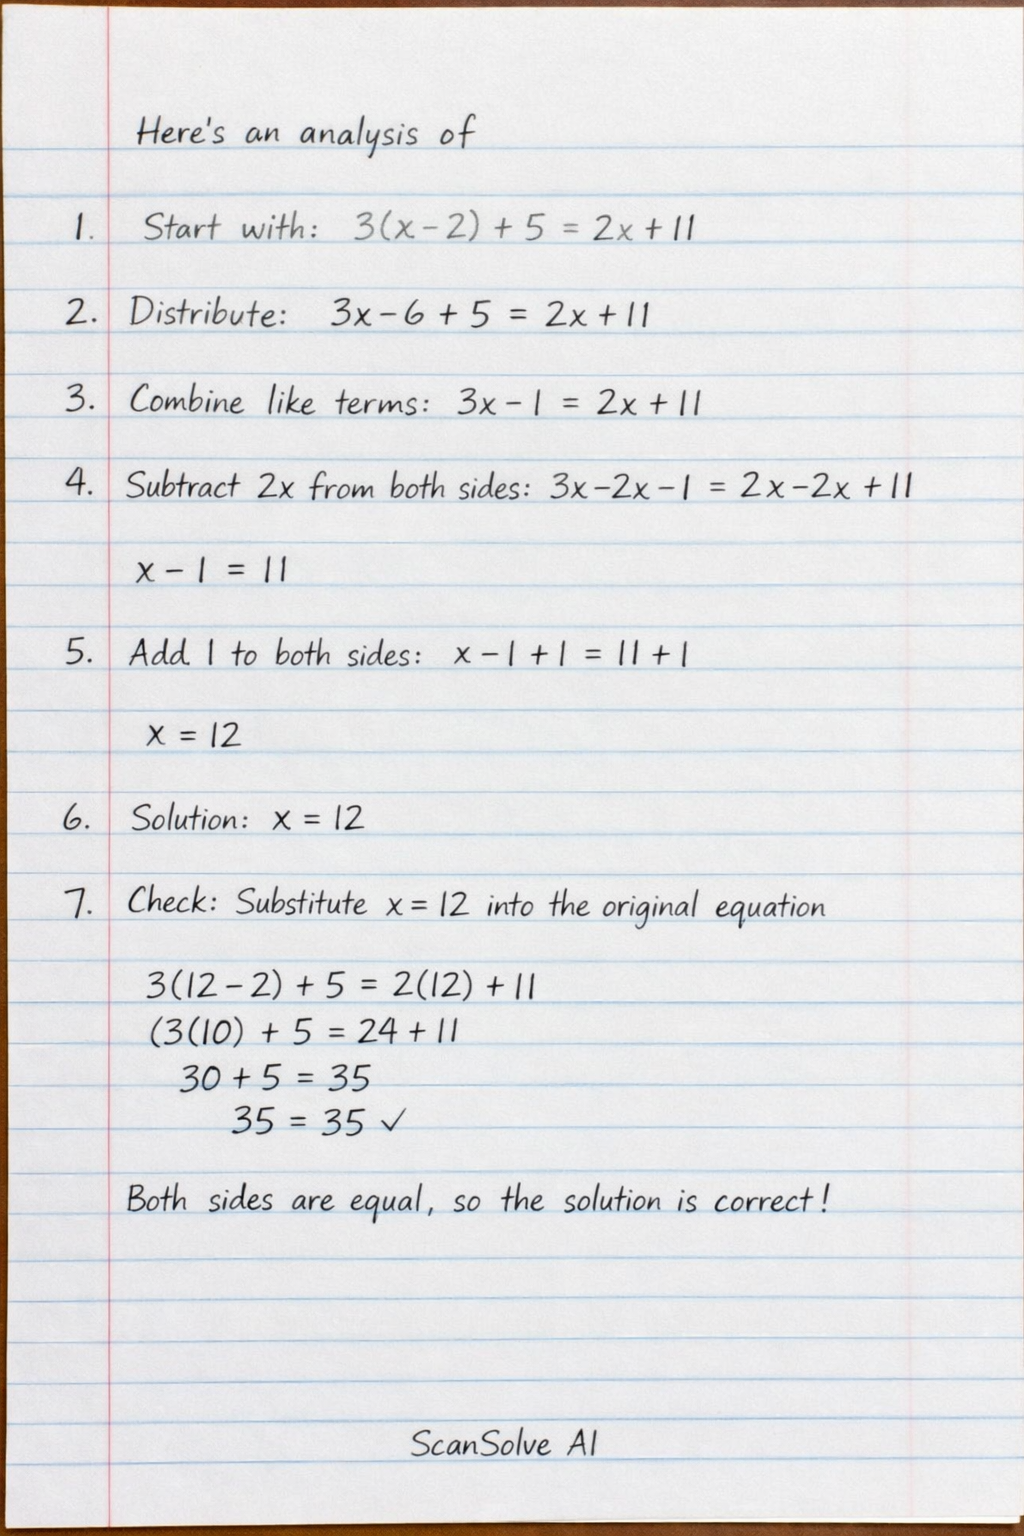 Here's an analysis of
1. Start with: 3(x-2) + 5 = 2x + 11
2. Distribute: 3x - 6 + 5 = 2x + 11
3. Combine like terms: 3x - 1 = 2x + 11
4. Subtract 2x from both sides: 3x - 2x - 1 = 2x - 2x + 11
x - 1 = 11
5. Add 1 to both sides: x - 1 + 1 = 11 + 1
x = 12
6. Solution: x = 12
7. Check: Substitute x = 12 into the original equation
3(12 - 2) + 5 = 2(12) + 11
(3(10) + 5 = 24 + 11
30 + 5 = 35
35 = 35 ✓
Both sides are equal, so the solution is correct!
ScanSolve AI